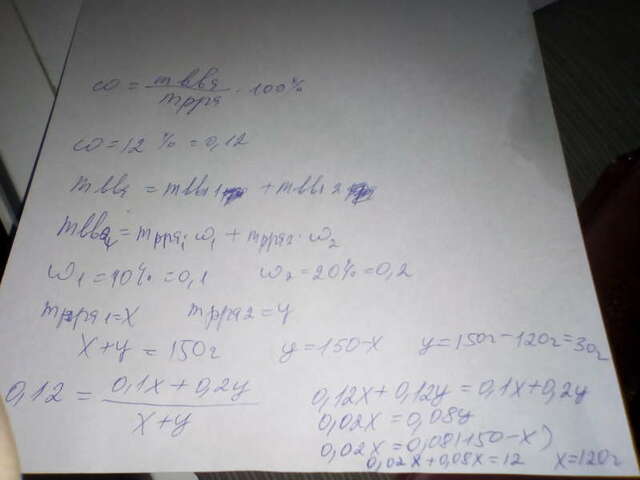 ω = mвва / mрра · 100%
ω = 12% = 0,12
mвва = mвв1 + mвв2
mвва = mрра1 · ω1 + mрра2 · ω2
ω1 = 10% = 0,1 ω2 = 20% = 0,2
mрра1 = x mрра2 = y
x + y = 150г y = 150-x y = 150г - 120г = 30г
0,12 = 0,1x + 0,2y / x + y
0,12x + 0,12y = 0,1x + 0,2y
0,02x = 0,08y
0,02x = 0,08(150 - x)
0,02x + 0,08x = 12 x = 120г